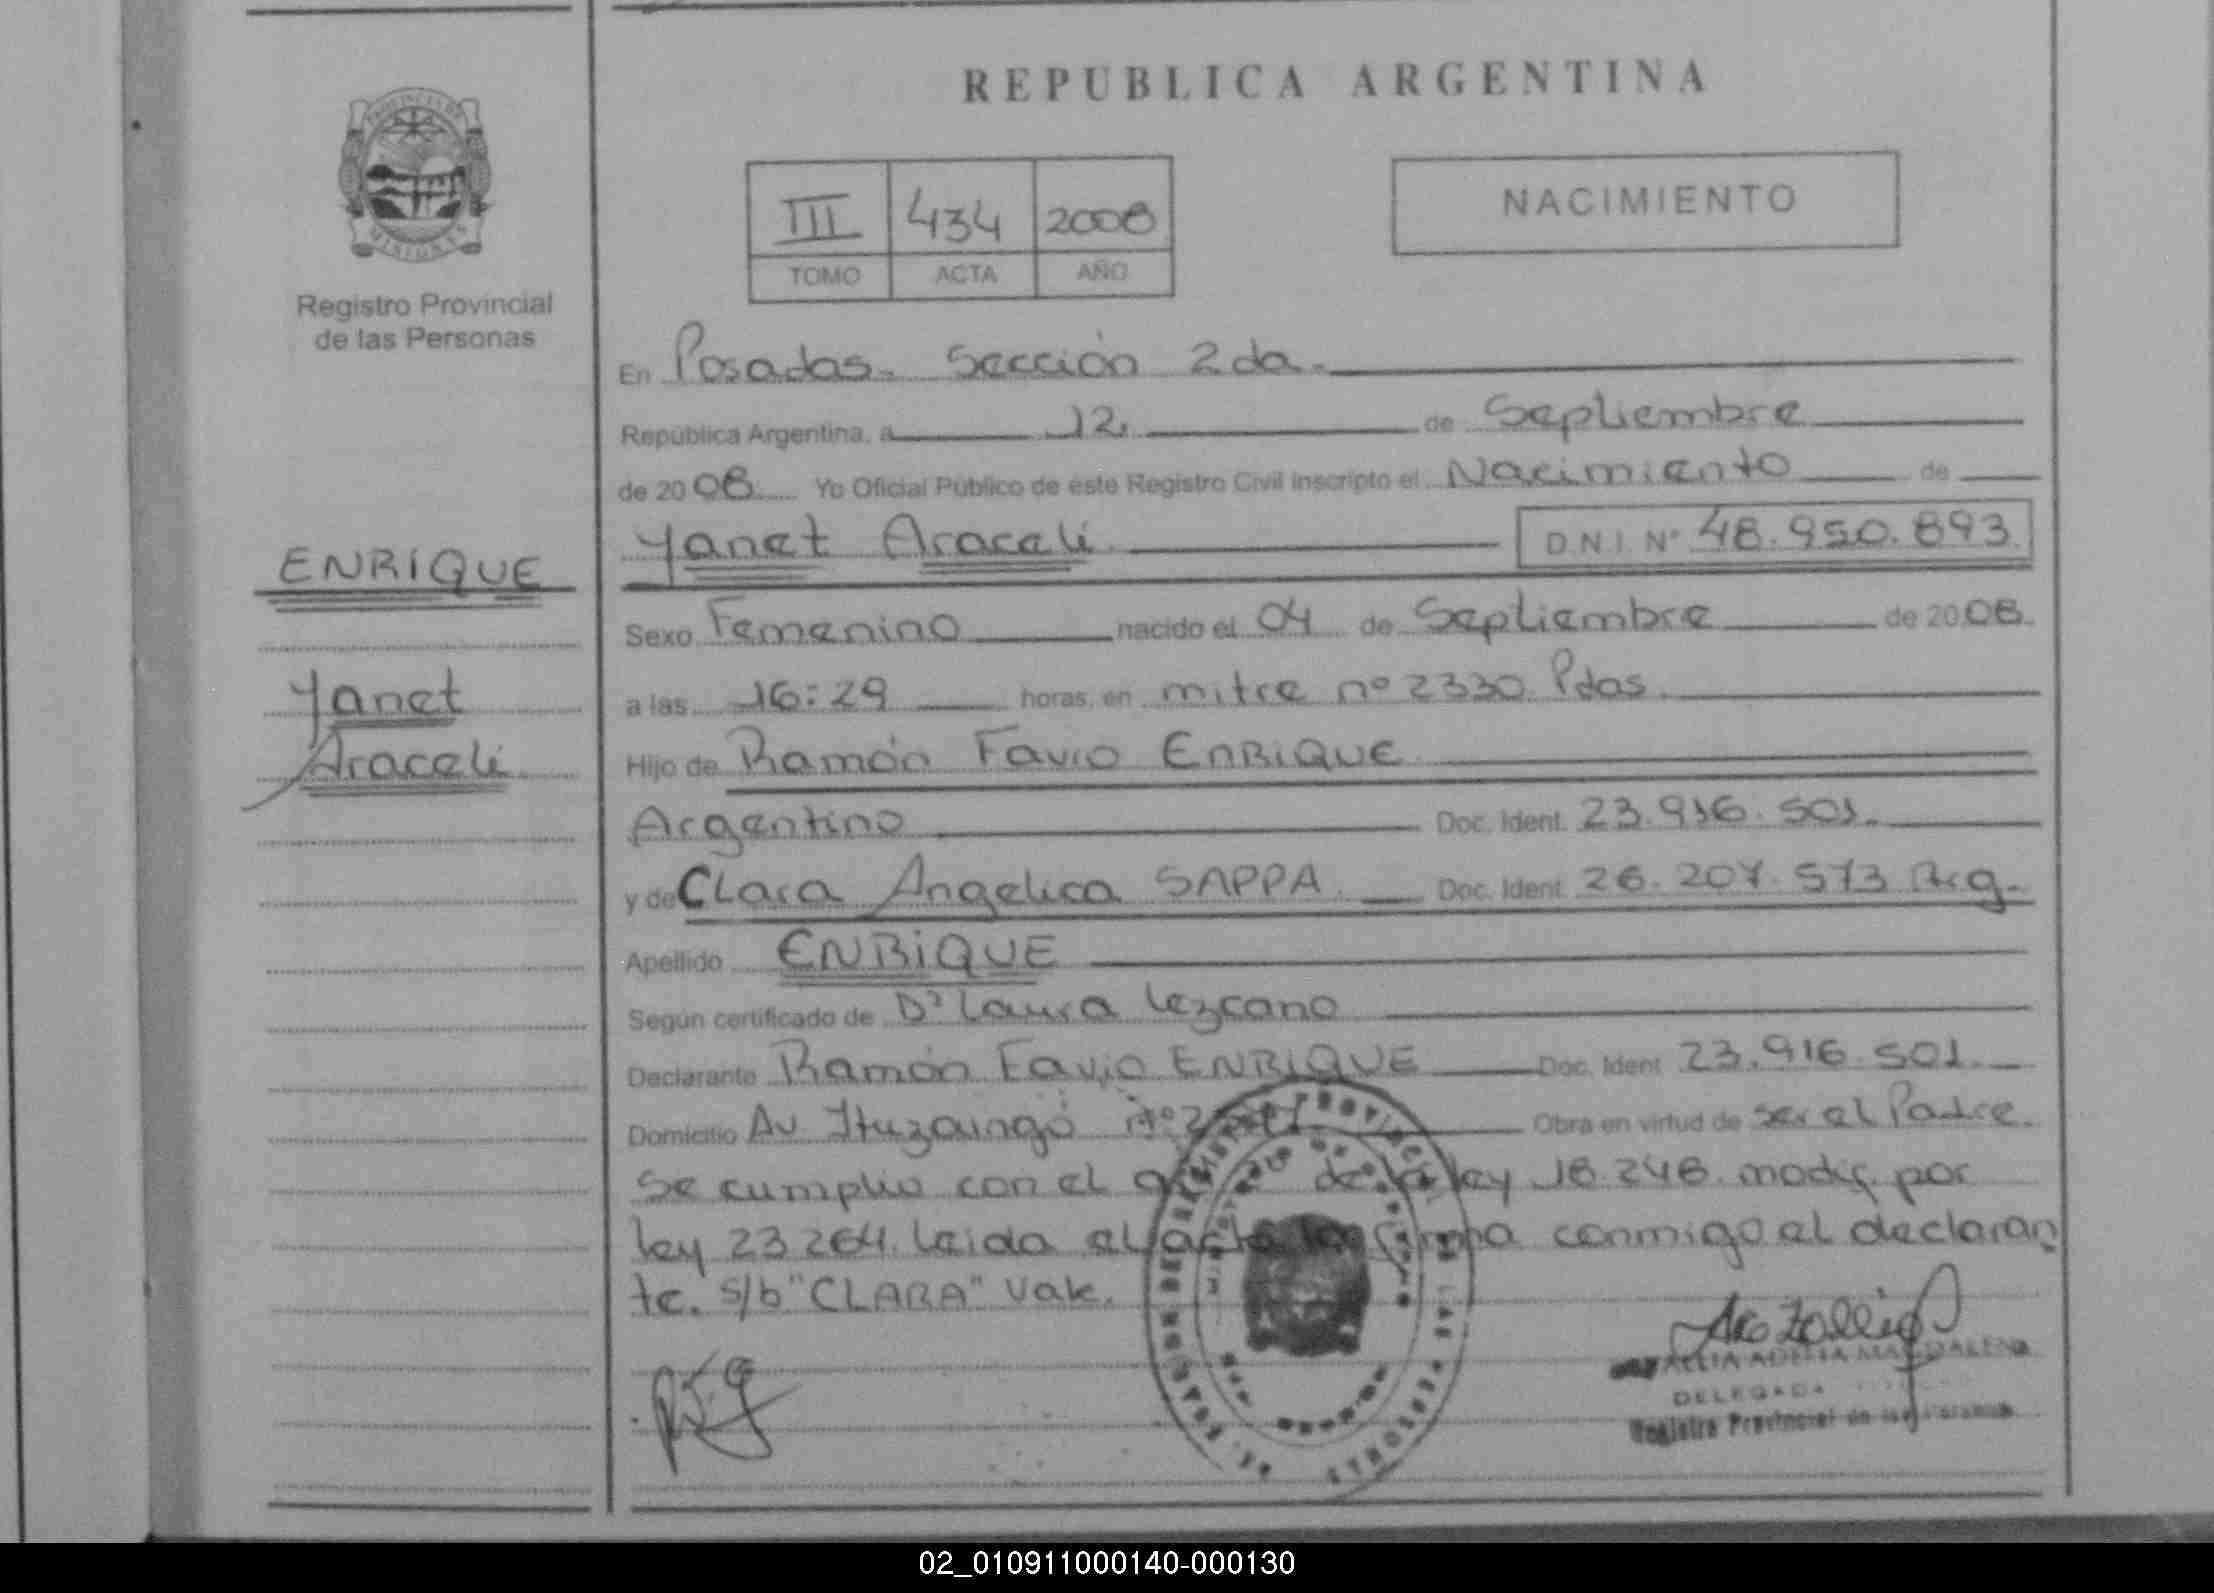 REPUBLICA ARGENTINA
III 434 2008
TOMO ACTA AÑO
NACIMIENTO
Registro Provincial
de las Personas
ENRIQUE
Yanet
Araceli
En Posadas. Sección 2da.
República Argentina, a 12 de Septiembre
de 2008 Yo Oficial Público de este Registro Civil inscripto el Nacimiento de
Yanet Araceli D.N.I. Nº 48.950.893
Sexo Femenino nacido el 04 de Septiembre de 2008.
a las 16:29 horas, en mitre nº 2330 Pdas.
Hijo de Ramón Favio ENRIQUE
Argentino Doc. Ident. 23.916.501.
y de Clara Angelica SAPPA Doc. Ident. 26.207.573 Arg.
Apellido ENRIQUE
Según certificado de Dª Laura Lezcano
Declarante Ramón Favio ENRIQUE Doc. Ident. 23.916.501.
Domicilio Av Ituzaingó Obra en virtud de ser el Padre.
Se cumplio con el de la ley 18.248 modif. por
ley 23264. leida el acta la firma conmigo el declaran
te. s/b "CLARA" Vale.
DELEGADA
Registro Provincial de las Personas
02_010911000140-000130